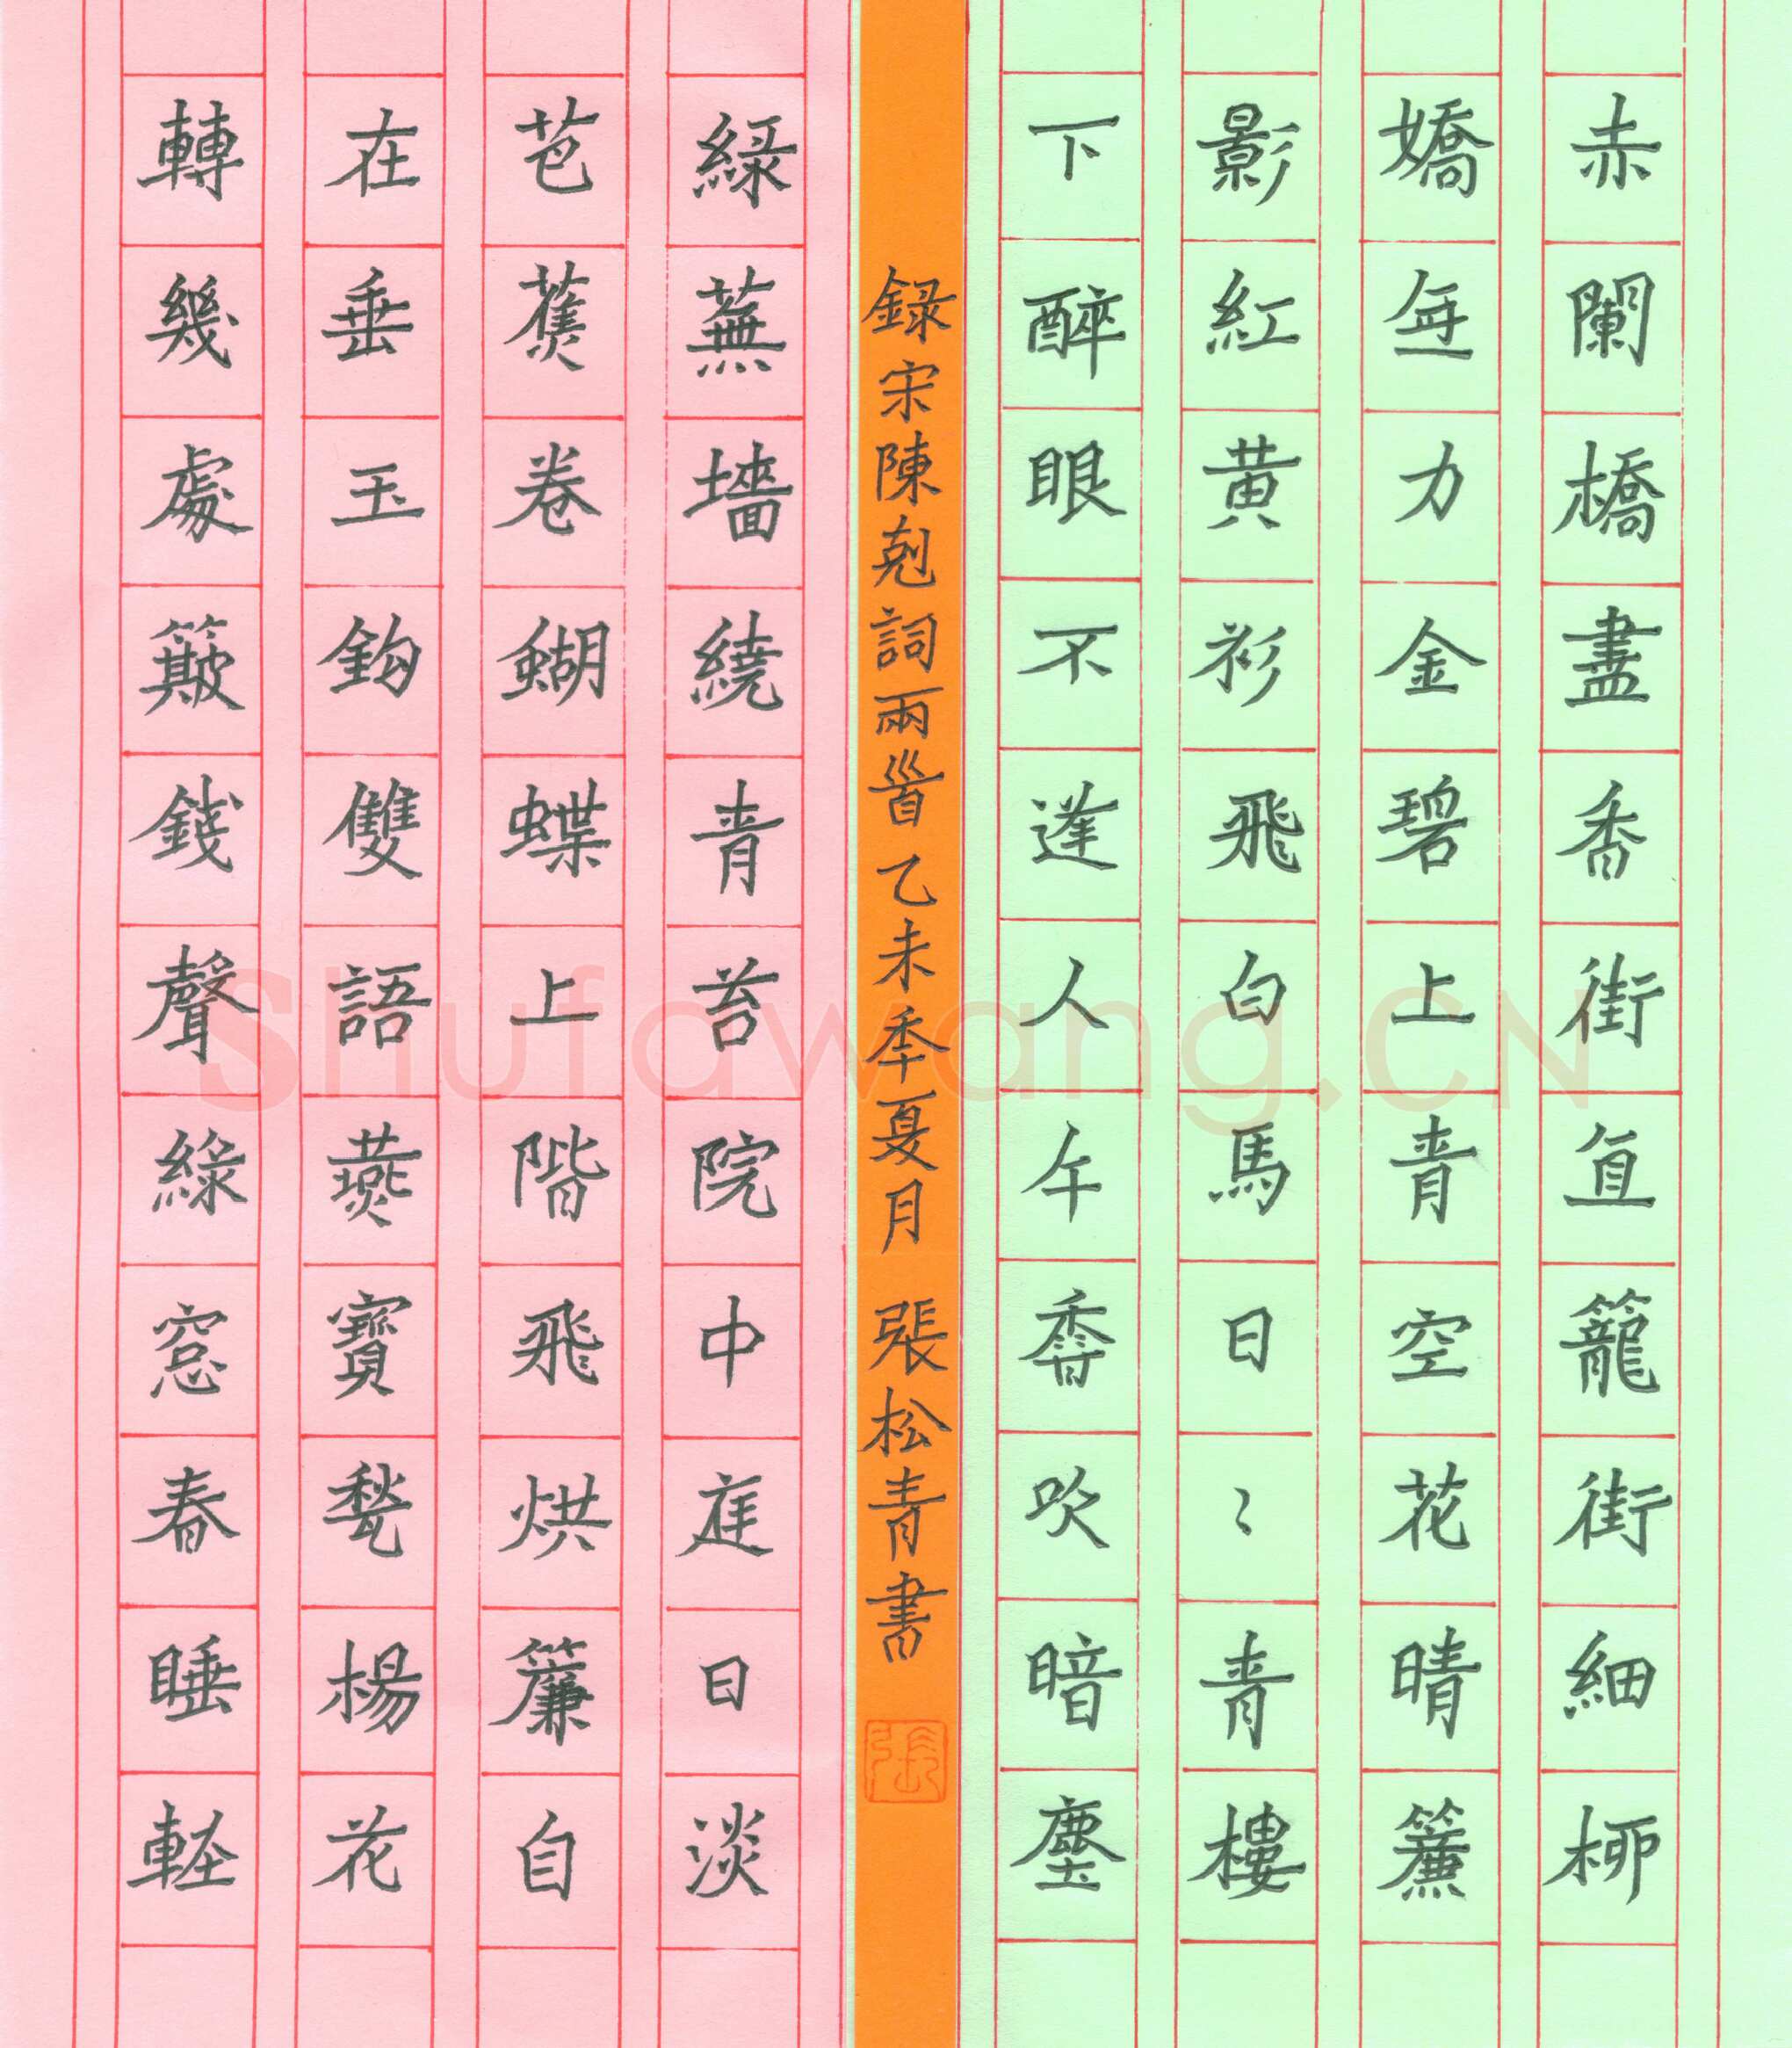 赤闌橋盡香街直籠街細柳
嬌無力金碧上青空花晴簾
影紅黄衫飛白馬日〻青樓
下醉眼不逢人午香吹暗塵
録宋陳剋詞兩首 乙未季夏月 張松青書
張
緑蕪墻繞青苔院中庭日淡
芭蕉卷蝴蝶上階飛烘簾自
在垂玉鈎雙語燕寶甃楊花
轉幾處簸錢聲綠窓春睡軽
Shufawang.CN